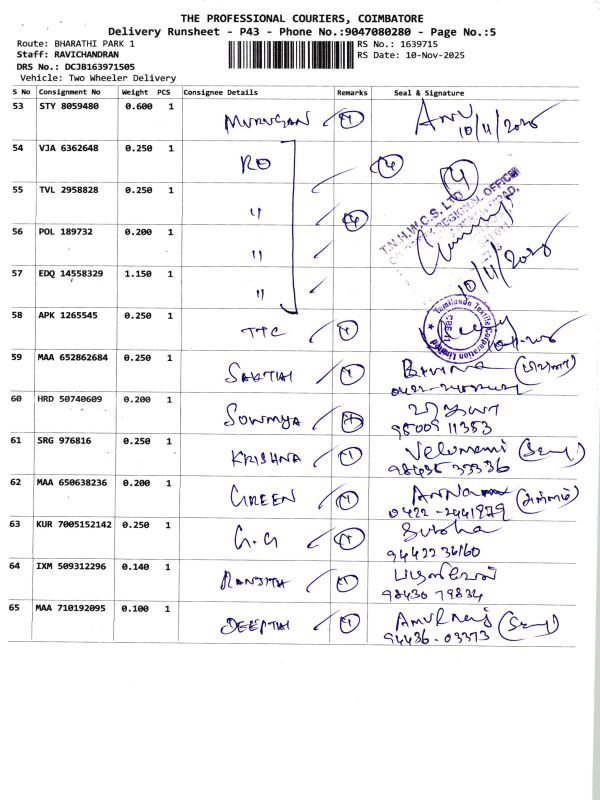 THE PROFESSIONAL COURIERS, COIMBATORE
Delivery Runsheet - P43 - Phone No.:9047080280 - Page No.:5
Route: BHARATHI PARK 1
RS No.: 1639715
Staff: RAVICHANDRAN
RS Date: 10-Nov-2025
DRS No.: DCJB163971505
Vehicle: Two Wheeler Delivery
S No Consignment No Weight PCS Consignee Details Remarks Seal & Signature
53 STY 8059480 0.600 1 MURUGAN 4 ANU
10/11/2025
54 VJA 6362648 0.250 1 RO 4 4
55 TVL 2958828 0.250 1 " 4
T.N.H.W.C.S. LTD
REGIONAL OFFICE
56 POL 189732 0.200 1 "
57 EDQ 14558329 1.150 1 "
10/11/2025
58 APK 1265545 0.250 1 TTC 4
Tamilnadu Textile Corporation Limited
59 MAA 652862684 0.250 1 SAKTHI 4
60 HRD 50740609 0.200 1 SOWMYA 4
95009 11353
61 SRG 976816 0.250 1 KRISHNA 4 Velumani
98435 35336
62 MAA 650638236 0.200 1 GREEN 4
0422-2441979
63 KUR 7005152142 0.250 1 G.G 4 Subha
94422 36160
64 IXM 509312296 0.140 1 RANJITH 4
98430 79834
65 MAA 710192095 0.100 1 DEEPTHI 4 Amulraj
94436-03373